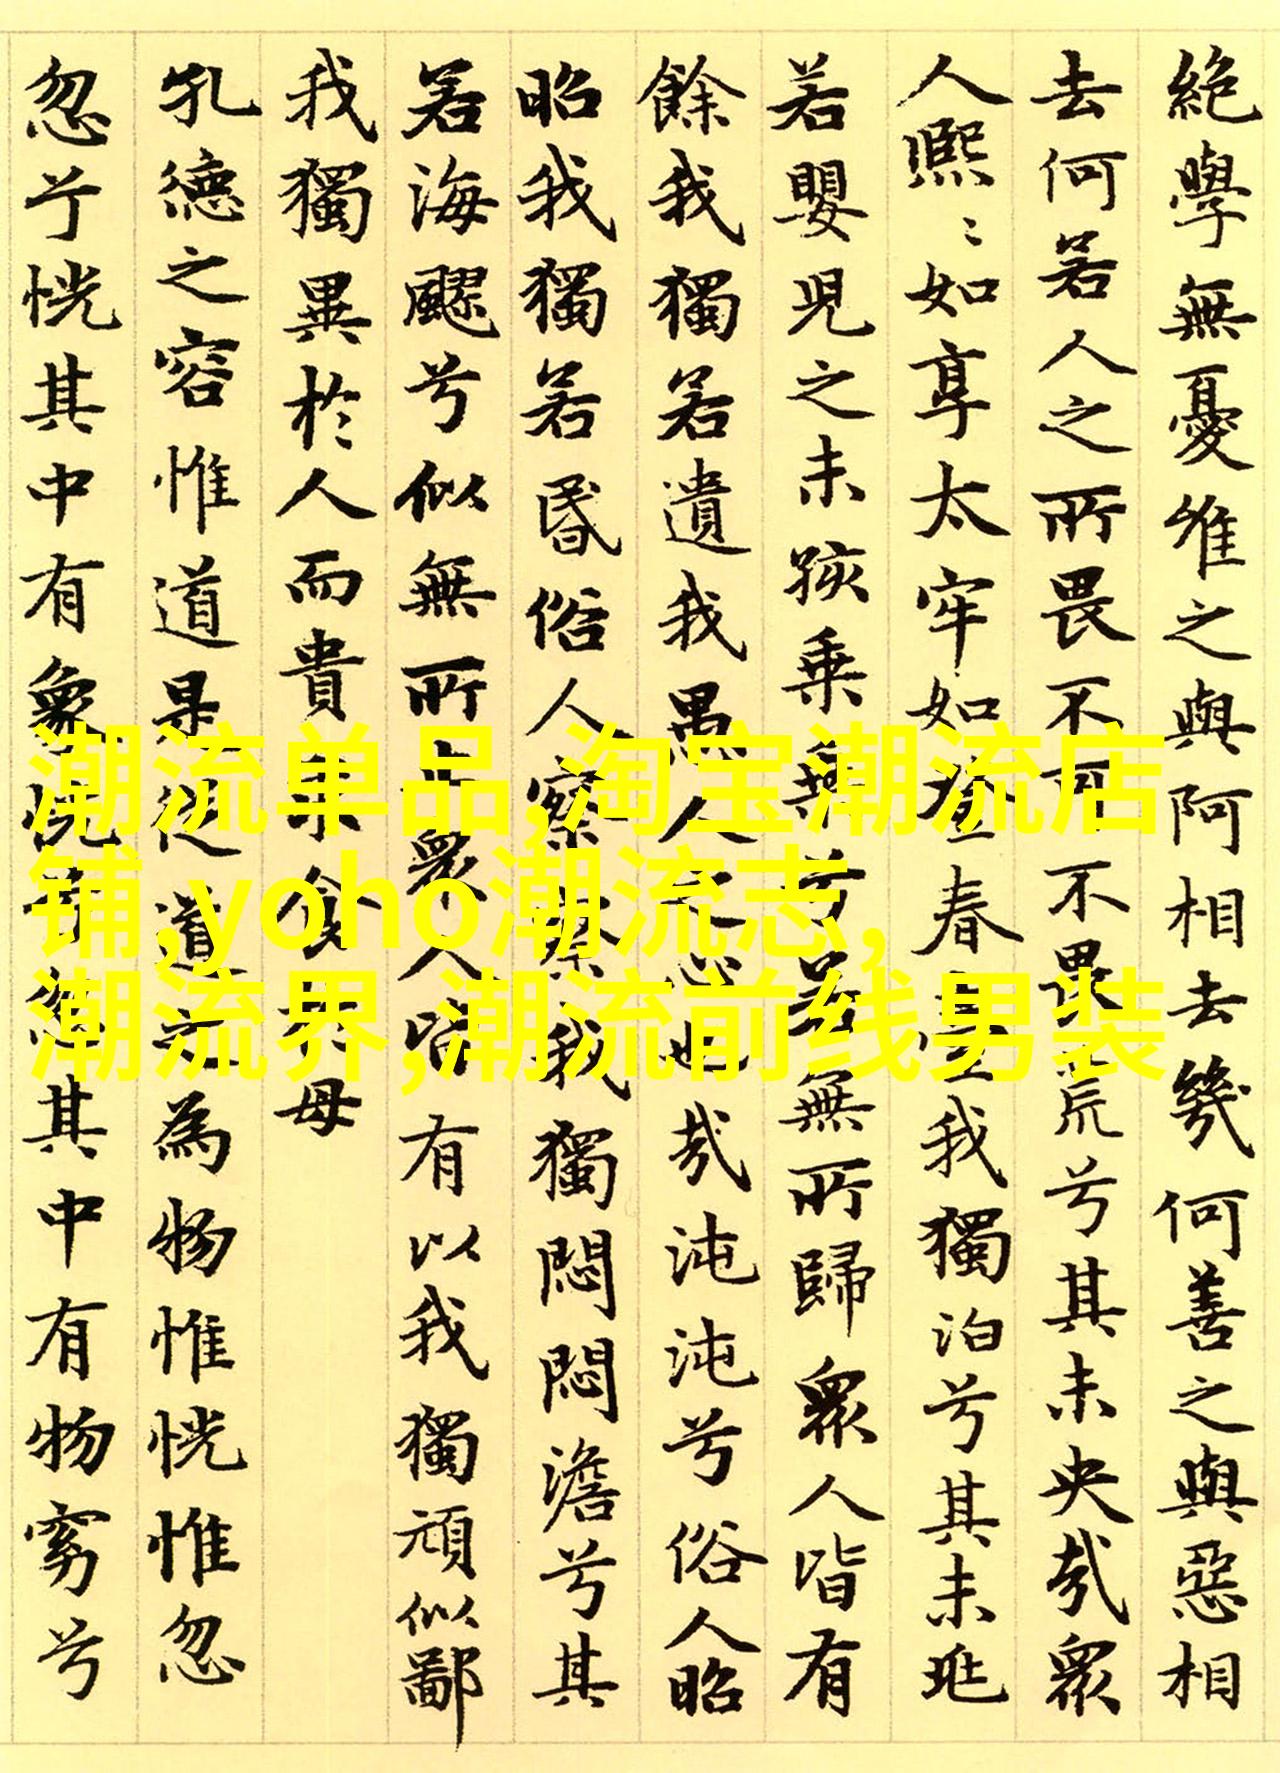 絶學無憂唯之與阿相去幾何善之與惡相
去何若人之所畏不可不畏荒兮其未央哉眾
人熙〻如享太牢如登春臺我獨泊兮其未兆
若嬰兒之未孩乗乗兮若無所歸眾人皆有
餘我獨若遺我愚人之心也哉沌沌兮俗人昭
昭我獨若昏俗人察察我獨悶悶澹兮其
若海飂兮似無所止眾人皆有以我獨頑似鄙
我獨異於人而貴求食於母
孔德之容惟道是從道之為物惟恍惟忽
忽兮恍其中有象恍兮忽其中有物窈兮
潮流单品,淘宝潮流店
铺,yoho潮流志,
潮流界,潮流前线男装